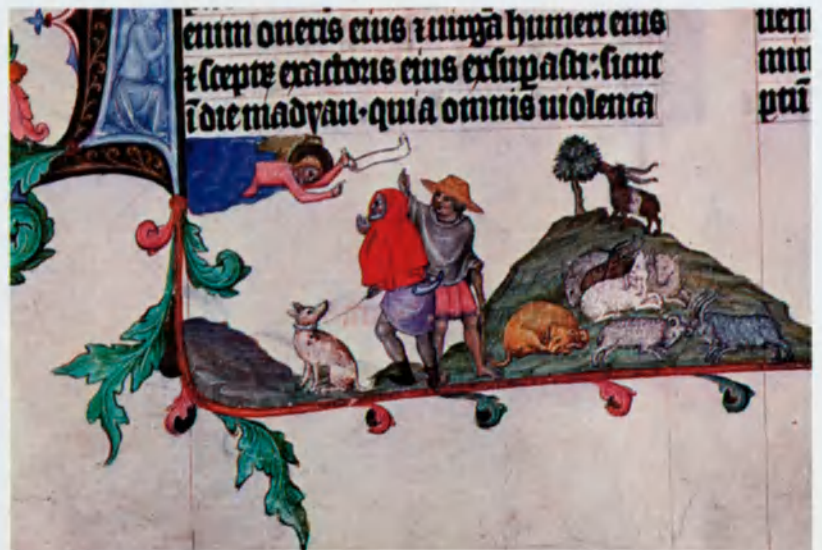 enim oneris eius ⁊ uirgā humeri eius
⁊ sceptꝝ exactoris eius exsupasti: sicut
ī die madyan· quia omnis uiolenta
uen
min
ptū